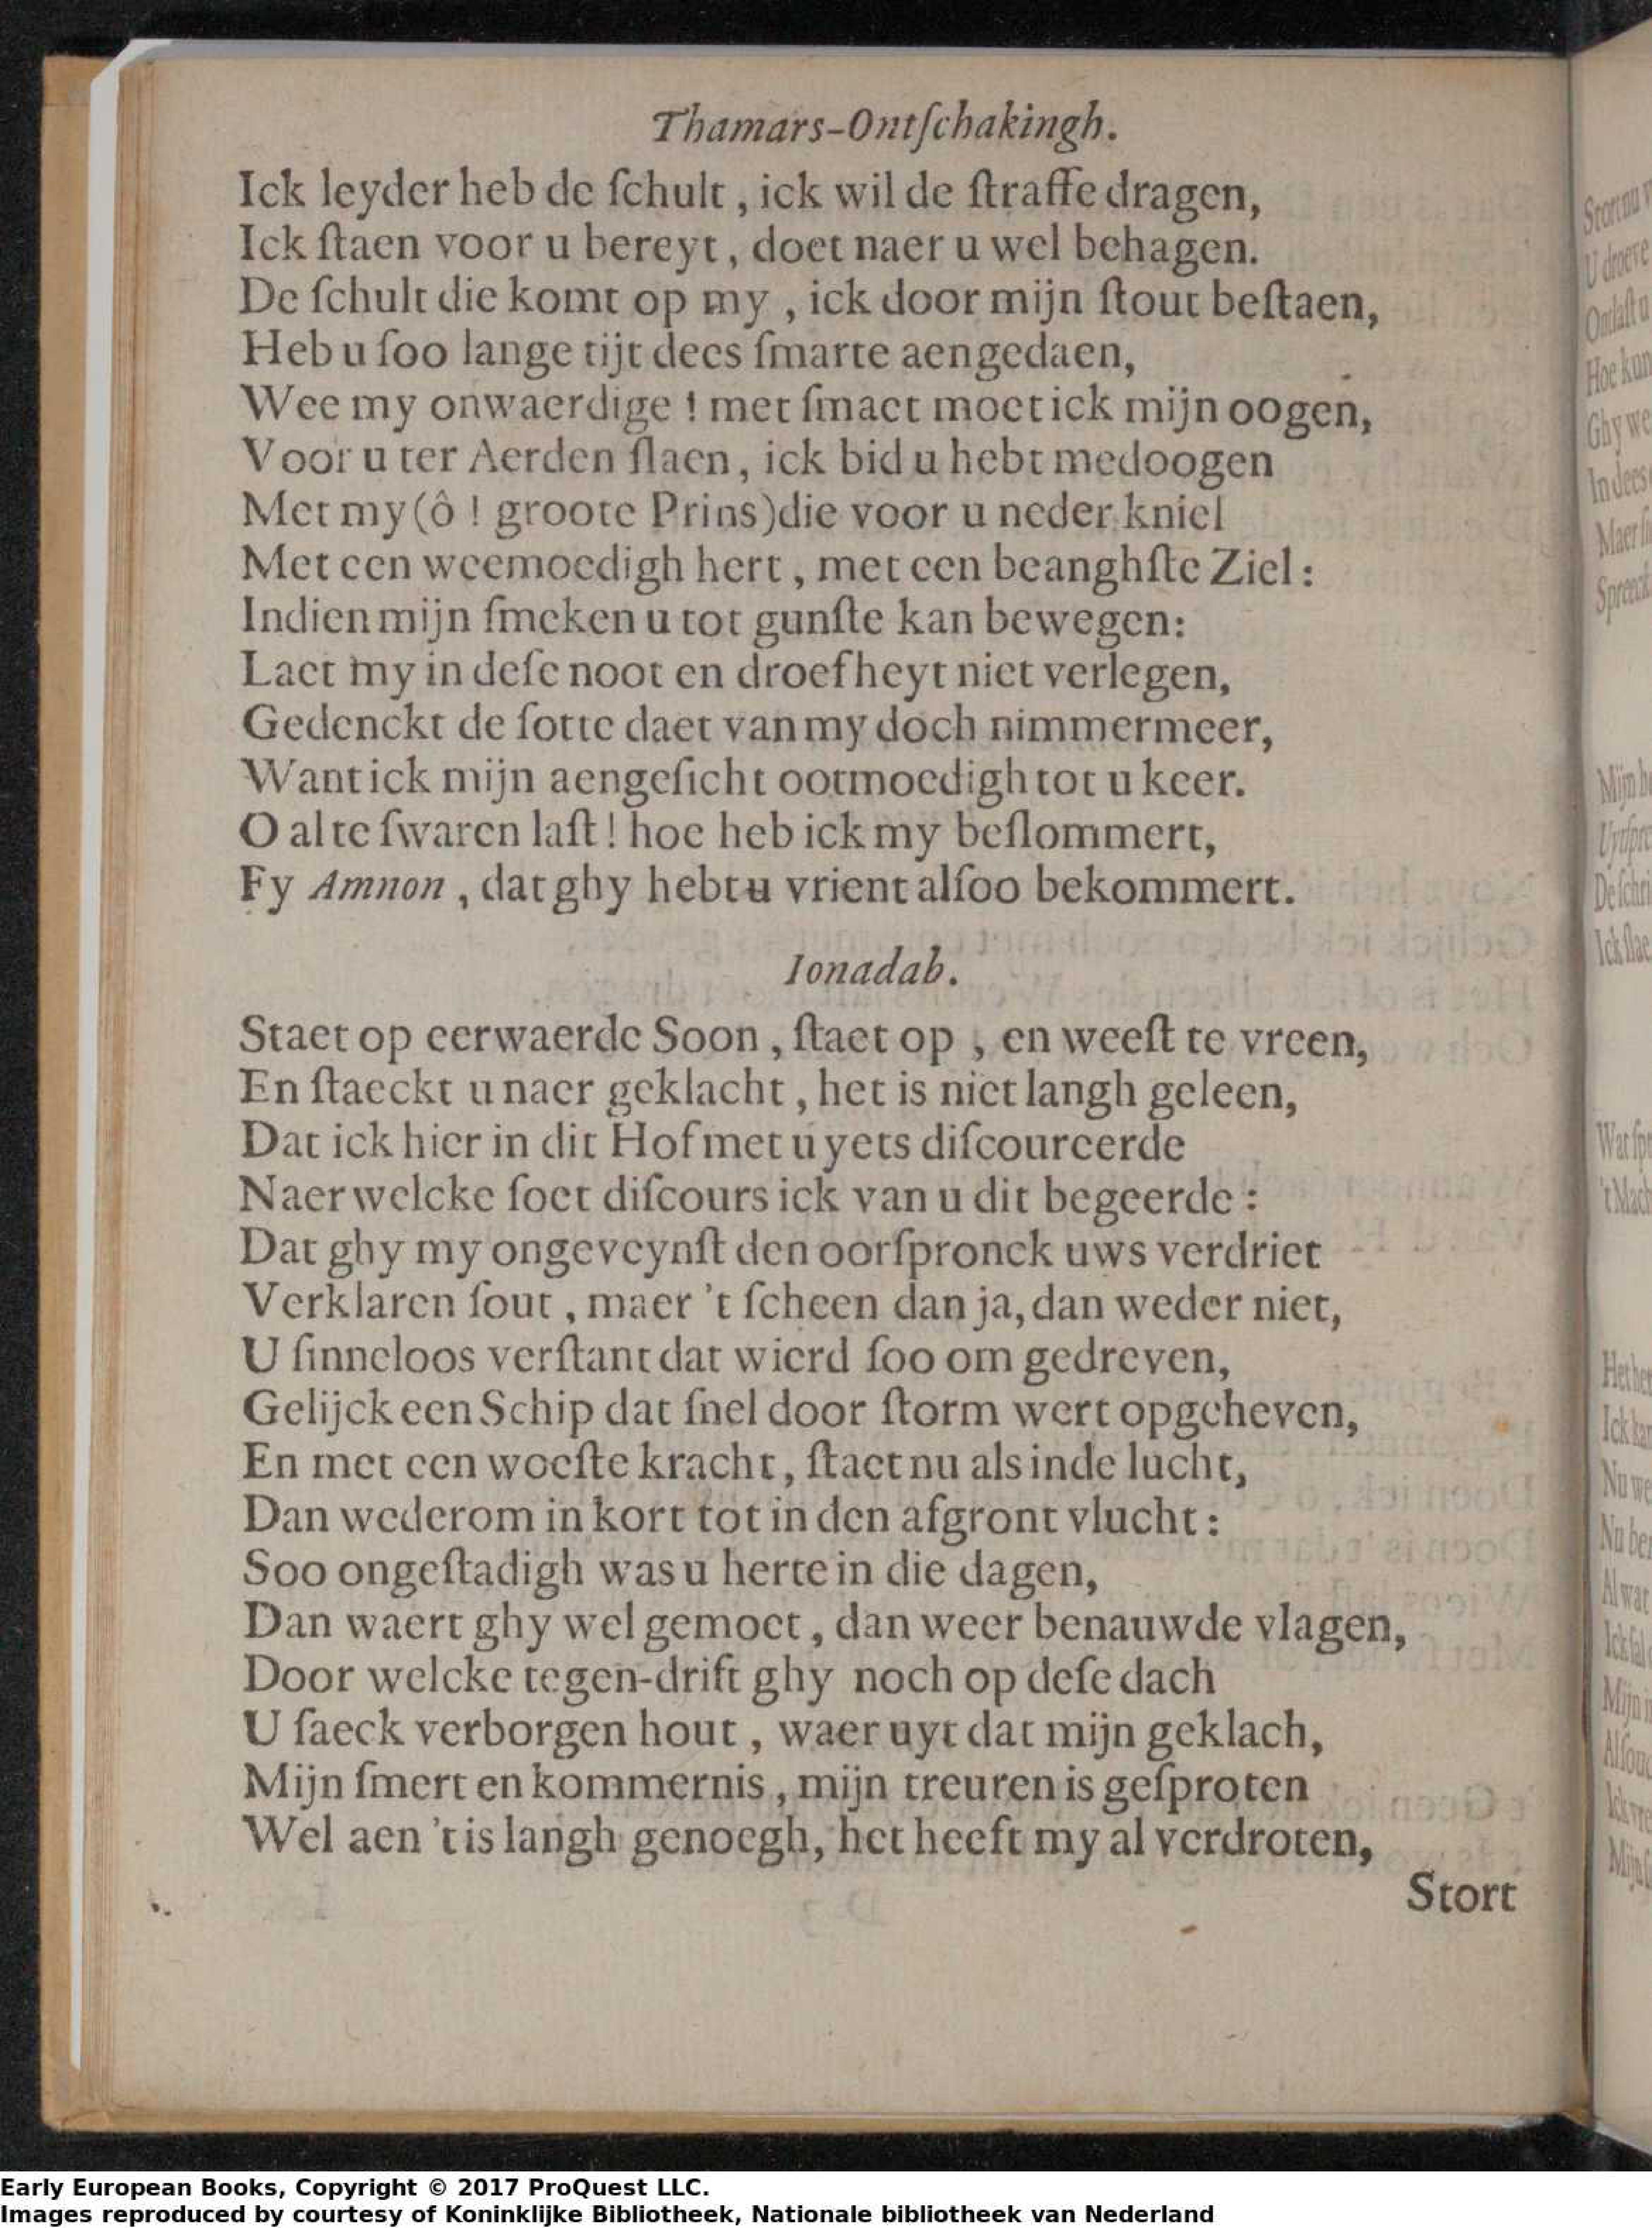 Thamars-Ontſchakingh.
Ick leyder heb de ſchult, ick wil de ſtraffe dragen,
Ick ſtaen voor u bereyt, doet naer u wel behagen.
De ſchult die komt op my, ick door mijn ſtout beſtaen,
Heb u ſoo lange tijt dees ſmarte aengedaen,
Wee my onwaerdige! met ſmaet moet ick mijn oogen,
Voor u ter Aerden ſlaen, ick bid u hebt medoogen
Met my (ô! groote Prins) die voor u neder kniel
Met een weemoedigh hert, met een beanghſte Ziel:
Indien mijn ſmeken u tot gunſte kan bewegen:
Laet my in deſe noot en droefheyt niet verlegen,
Gedenckt de ſotte daet van my doch nimmermeer,
Want ick mijn aengeſicht ootmoedigh tot u keer.
O al te ſwaren laſt! hoe heb ick my beſlommert,
Fy Amnon, dat ghy hebt u vrient alſoo bekommert.
Ionadab.
Staet op eerwaerde Soon, ſtaet op, en weeſt te vreen,
En ſtaeckt u naer geklacht, het is niet langh geleen,
Dat ick hier in dit Hof met u yets diſcoureerde
Naer welcke ſoet diſcours ick van u dit begeerde:
Dat ghy my ongeveynſt den oorſpronck uws verdriet
Verklaren ſout, maer 't ſcheen dan ja, dan weder niet,
U ſinneloos verſtant dat wierd ſoo om gedreven,
Gelijck een Schip dat ſnel door ſtorm wert opgeheven,
En met een woeſte kracht, ſtaet nu als inde lucht,
Dan wederom in kort tot in den afgront vlucht:
Soo ongeſtadigh was u herte in die dagen,
Dan waert ghy wel gemoet, dan weer benauwde vlagen,
Door welcke tegen-drift ghy noch op deſe dach
U ſaeck verborgen hout, waer uyt dat mijn geklach,
Mijn ſmert en kommernis, mijn treuren is geſproten
Wel aen 't is langh genoegh, het heeft my al verdroten,
Stort
Early European Books, Copyright © 2017 ProQuest LLC.
Images reproduced by courtesy of Koninklijke Bibliotheek, Nationale bibliotheek van Nederland